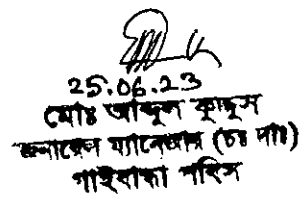 25.06.23
মোঃ আব্দুল কুদ্দুস
জেনারেল ম্যানেজার (চঃ দাঃ)
গাইবান্ধা পবিস